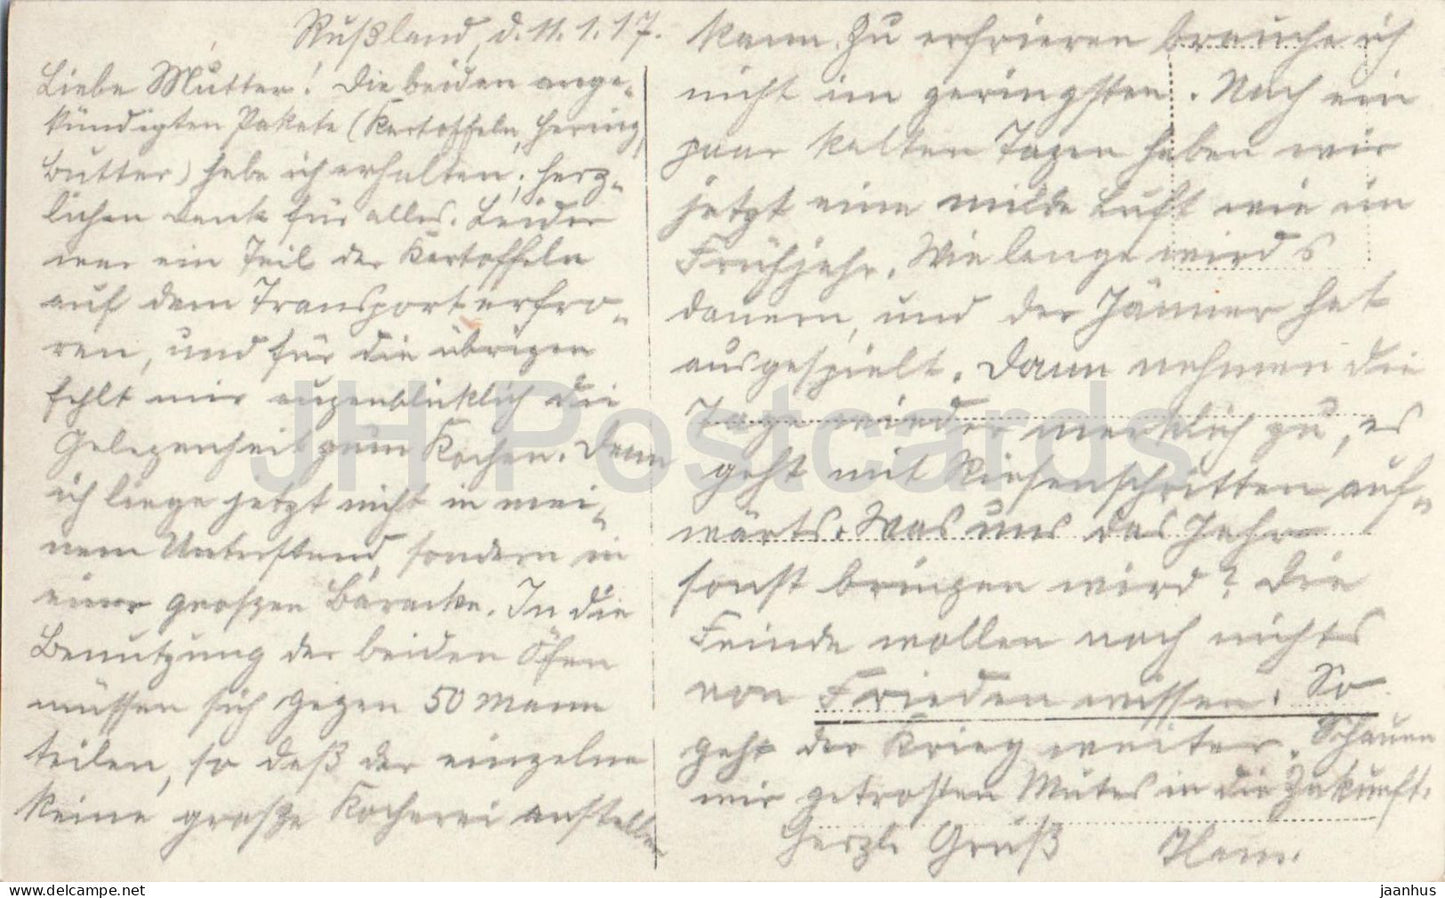 Rußland, d. 11.1.17.
Liebe Mutter! Die beiden ange-
kündigten Pakete (Kartoffeln, Hering,
Butter) habe ich erhalten; herz-
lichen Dank für alles. Leider
war ein Teil der Kartoffeln
auf dem Transport erfro-
ren, und für die übrigen
fehlt mir augenblicklich die
Gelegenheit zum Kochen. Denn
ich liege jetzt nicht in mei-
nem Unterstand, sondern in
einer groszen Baracke. In die
Benutzung der beiden Öfen
müssen sich gegen 50 Mann
teilen, so daß der einzelne
keine große Kocherei anstellen
kann. Zu erfrieren brauche ich
nicht im geringsten. Nach ein
paar kalten Tagen haben wir
jetzt eine milde Luft wie im
Frühjahr. Wie lange wird's
dauern, und der Jänner hat
ausgespielt. Dann nehmen die
Tage wieder merklich zu, es
geht mit Riesenschritten auf-
wärts. Was uns das Jahr
sonst bringen wird? Die
Feinde wollen noch nichts
von Frieden wissen. So
geht der Krieg weiter. Schauen
wir getrosten Mutes in die Zukunft.
Herzl. Gruß
JH Postcards
www.hippostcard.com
jaanhus